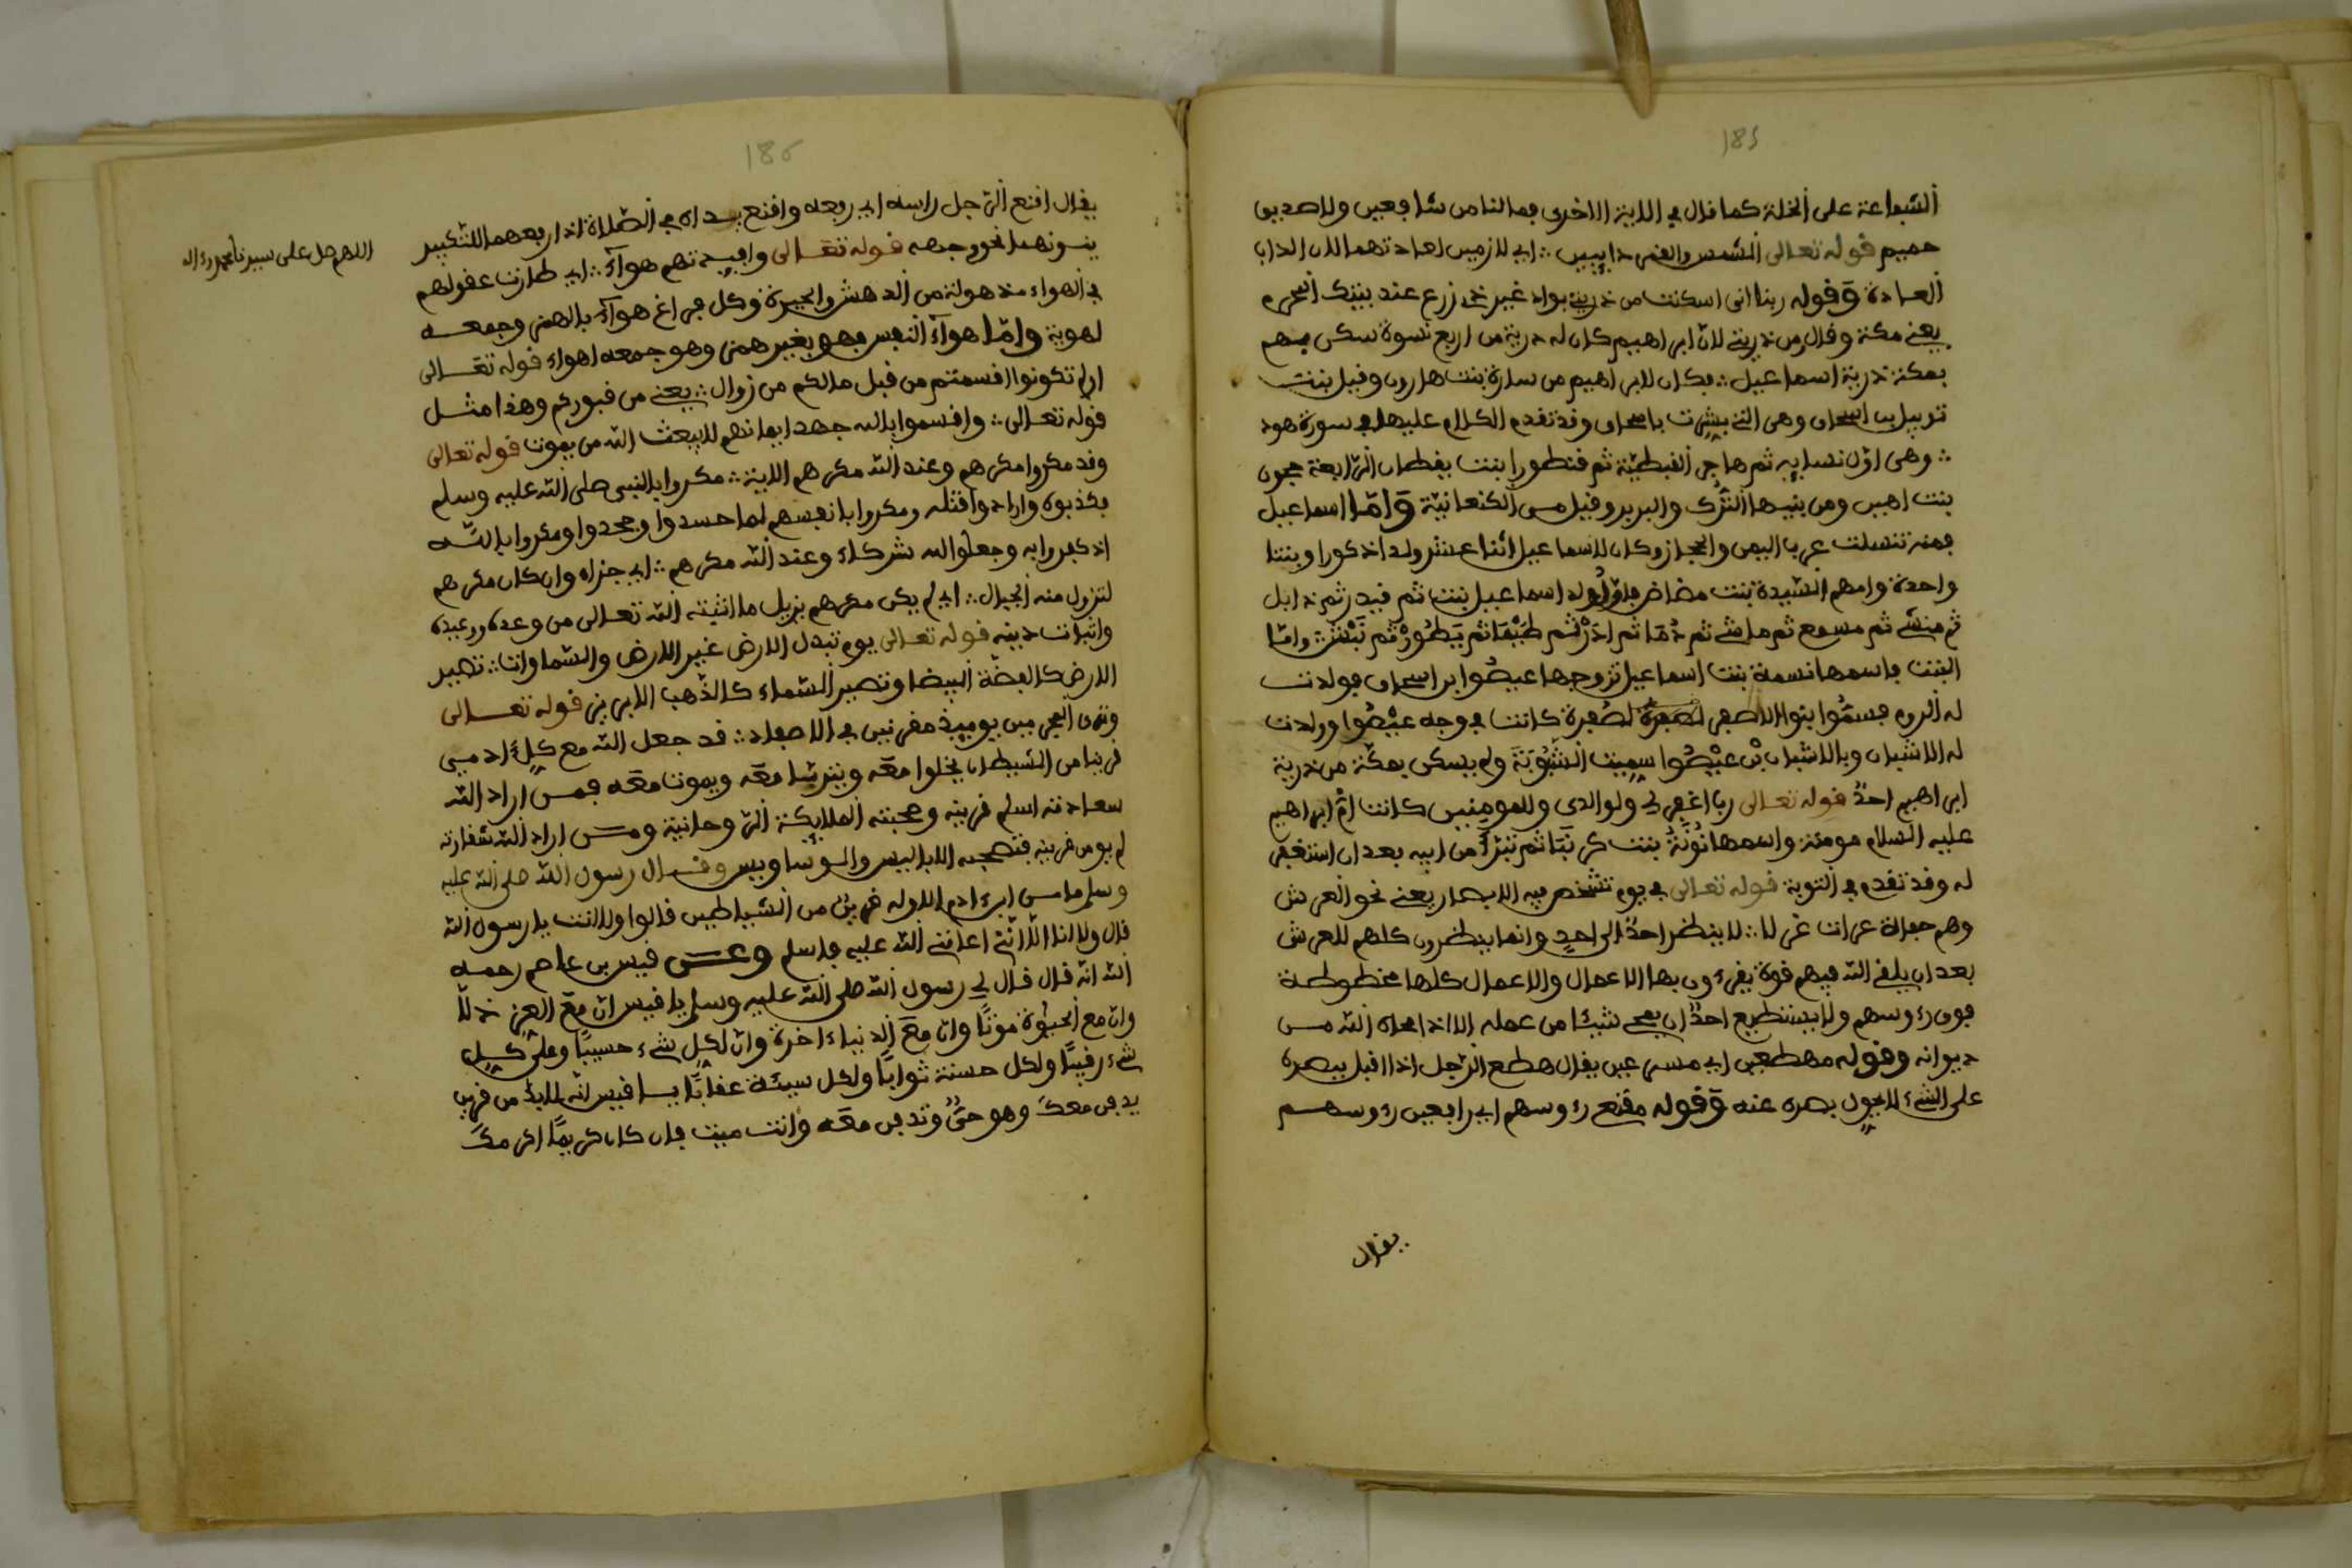 185
الشفاعة على الخلة كما قال في الاية الاخرى فما لنا من شافعين ولا صديق
حميم قوله تعالى الشمس والقمر دايبين ؞ اي لازمين لعادتهما لان الداب
العادة وقوله ربنا اني اسكنت من ذريتي بواد غير ذي زرع عند بيتك المحرم
يعني مكة وقال من ذريتي لان ابراهيم كان له ذرية من اربع نسوة سكن منهم
بمكة ذرية اسماعيل ؞ فكان لابراهيم من سارة بنت هارون وقيل بنت
اسحاق وهي التي بشرت باسحاق وقد تقدم الكلام عليها في سورة هود
؞ وهي اول نسايه ثم هاجر القبطية ثم قنطورا بنت يقطان الرابعة حجون
بنت اهين ومن بنيها الترك والبربر وقيل من الكنعانية واما اسماعيل
فمنه تنسلت عرب اليمن والحجاز وكان لاسماعيل اثنا عشر ولدا ذكورا وبنتا
واحدة وامهم السيدة بنت مضاض فاول ولد اسماعيل بنت ثم قيدر ثم ذابل
ثم منشي ثم مسمع ثم ماشي ثم دما ثم ادر ثم طيما ثم يطور ثم نبش ؞ واما
البنت فاسمها نسمة بنت اسماعيل تزوجها عيصوا بن اسحاق فولدت
له الروم فسموا بنوا الاصفر لصفرة كانت في وجه عيصوا وولدت
له الاشبان وبالاشبان بن عيصوا سميت ولم يسكن بمكة من ذرية
ابراهيم احد قوله تعالى ربنا اغفر لي ولوالدي وللمومنين كانت ام ابراهيم
عليه السلام مومنة واسمها نونة بنت كرنبا ثم تبرأ من ابيه بعد ان استغفر
له وقد تقدم في التوبة قوله تعالى في يوم تشخص فيه الابصار يعني نحو العرش
وهم حفاة عراة غرلا ؞ لا ينظر احد الى احد وانما ينظرون كلهم للعرش
بعد ان يلقي الله فيهم قوة يقرءون بها الاعمال والاعمال كلها مخطوطة
فوق رءوسهم ولا يستطيع احد ان يمحي شيئا من عمله الا اذا محاه الله من
ديوانه وقوله مهطعين اي مسرعين يقال هطع الرجل اذا اقبل ببصره
على الشيء لا يحول بصره عنه وقوله مقنع رءوسهم اي رافعين رءوسهم
يقال
186
يقال اقنع الرجل راسه اي رفعه واقنع يداه في الصلاة اذا رفعهما للتكبير
اللهم صل على سيدنا محمد وءاله
نحو وجهه قوله تعالى وافيدتهم هواء ؞ اي طارت عقولهم
في الهواء مذهولة من الدهش والحيرة وكل فراغ هواء بالهمز وجمعه
اهوية واما هواء النفس فهو بغير همز وهو جمعه اهواء قوله تعالى
اولم تكونوا اقسمتم من قبل ما لكم من زوال ؞ يعني من قبوركم وهذا مثل
قوله تعالى ؞ واقسموا بالله جهد ايمانهم لا يبعث الله من يموت قوله تعالى
وقد مكروا مكرهم وعند الله مكرهم الاية ؞ مكروا بالنبي صلى الله عليه وسلم
فكذبوه وارادوا قتله ومكروا بانفسهم لما حسدوا وجحدوا ومكروا بالله
اذ كفروا به وجعلوا لله شركاء وعند الله مكرهم ؞ اي جزاه وان كان مكرهم
لتزول منه الجبال ؞ اي لم يكن مكرهم يزيل ما اثبته الله تعالى من وعده ووعيده
واثبات دينه قوله تعالى يوم تبدل الارض غير الارض والسماوات ؞ تصير
الارض كالفضة البيضا وتصير السماء كالذهب الابريز قوله تعالى
وترى المجرمين يوميذ مقرنين في الاصفاد ؞ قد جعل الله مع كل ءادمي
قرينا من الشيطان يخلوا معه وينشا معه ويموت معه فمن اراد الله
سعادته اسلم قرينه وصحبته الملايكة الروحانية ومن اراد الله شقاوته
لم يومن قرينه فتصحبه الاباليس والوساويس وقال رسول الله صلى الله عليه
وسلم ما من ابن ءادم الا وله قرين من الشياطين قالوا ولا انت يا رسول الله
قال ولا انا الا اني اعانني الله عليه فاسلم وعن قيس بن عاصم رحمه
الله انه قال قال لي رسول الله صلى الله عليه وسلم يا قيس ان مع العز ذلا
وان مع الحيوة موتا وان مع الدنيا ءاخرة وان لكل شيء حسيبا وعلى كل
شيء رقيبا ولكل حسنة ثوابا ولكل سيئة عقابا يا قيس انه لابد من قرين
يدفن معك وهو حي وتدفن معه وانت ميت فان كان كريما اكرمك